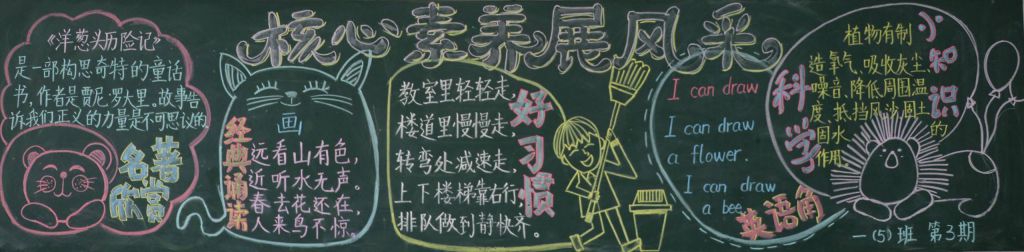 核心素养展风采
《洋葱头历险记》
是一部构思奇特的童话
书,作者是贾尼·罗大里。故事告
诉我们正义的力量是不可思议的
名著
欣赏
经典诵读
画
远看山有色,
近听水无声。
春去花还在,
人来鸟不惊。
教室里轻轻走,
楼道里慢慢走,
转弯处减速走,
上下楼梯靠右行,
排队做到静快齐。
好习惯
I can draw
I can draw
a flower.
I can draw
a bee
英语角
科学
小知识
植物有制
造氧气、吸收灰尘、
噪音、降低周围温
度、抵挡风沙、固土
固水的
作用。
一(5)班 第3期